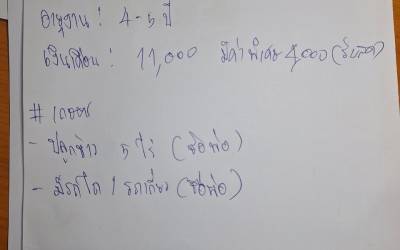 อายุงาน : 4-5 ปี
เงินเดือน : 11,000 มีค่าพิเศษ 4,000 (รับสด)
# เกษตร
- ปลูกข้าว 5 ไร่ (ชื่อพ่อ)
- มีรถไถ 1 รถเกี่ยว (ชื่อพ่อ)